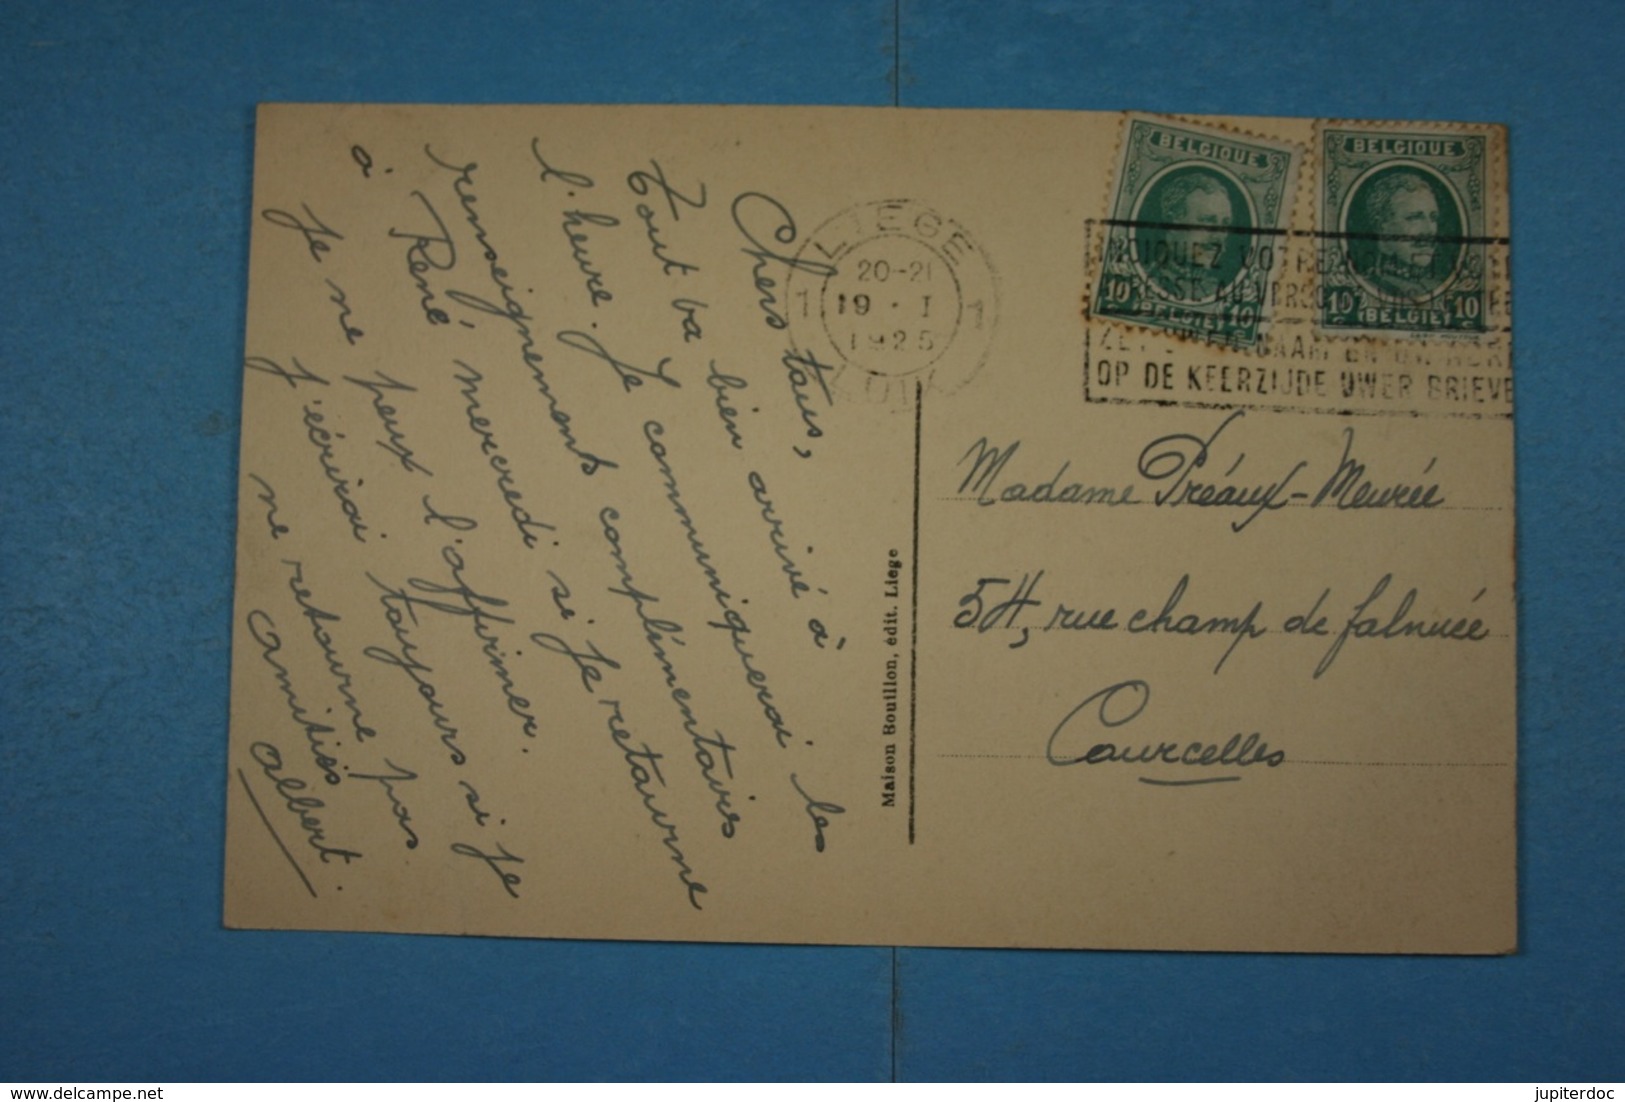 Chers tous,
Tout va bien arrivé à
l'heure. Je communiquerai les
renseignements complémentaires
à René, mercredi si je retourne
Je ne peux l'affirmer.
j'écrirai toujours si je
ne retourne pas.
Amitiés
Albert.
Maison Bouillon, édit. Liege
LIEGE
1 20-21 1
19 · I
1925
LUIK
BELGIQUE
10 10
BELGIË
BELGIQUE
10 10
BELGIË
INDIQUEZ VOTRE NOM ET
ADRESSE AU VERSO DE VOS LETTRES
ZET UW NAAM EN UW ADRES
OP DE KEERZIJDE UWER BRIEVE
Madame Préaux-Meurée
54, rue champ de falnuée
Courcelles
jupiterdoc
delcampe.net